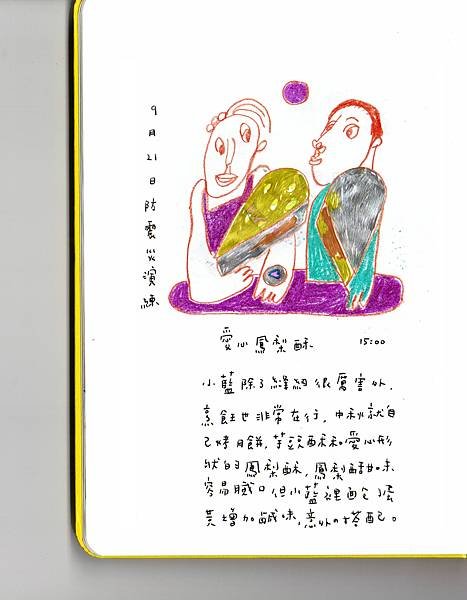 9月21日防震災演練
愛心鳳梨酥 15:00
小藍除了縫紉很厲害外,
烹飪也非常在行,中秋就自
己烤月餅,芋頭酥和愛心形
狀的鳳梨酥,鳳梨酥甜味
容易膩口但小藍裡面包了蛋
黃增加鹹味,意外的搭配。